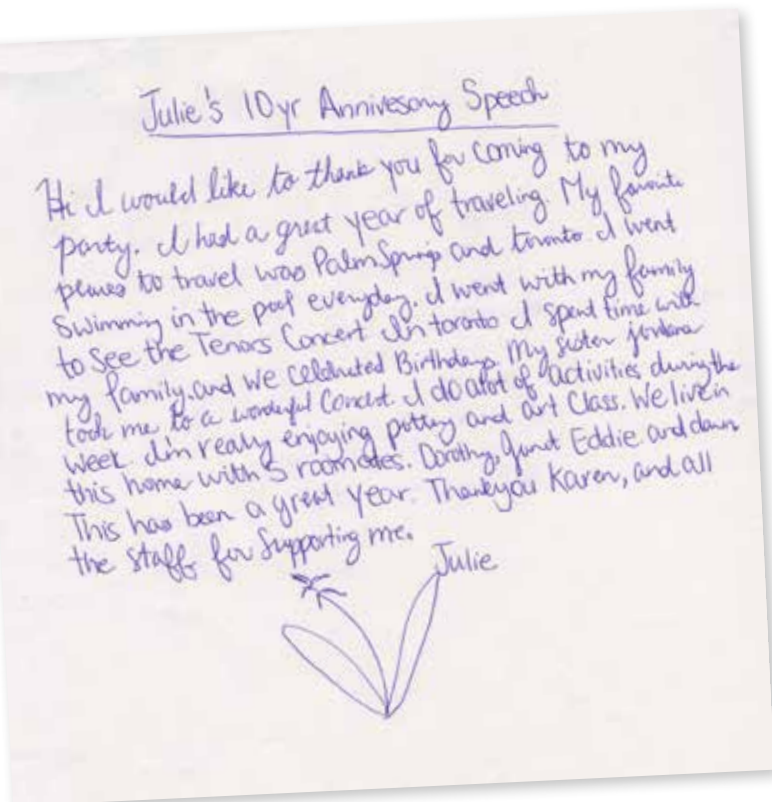 Julie's 10yr Annivesary Speech
Hi I would like to thank you for coming to my
party. I had a great year of traveling. My favourite
places to travel was Palm Springs and toronto I went
Swimming in the pool everyday. I went with my family
to See the Tenors Concert In toronto I spent time with
my family. and we celebrated Birthdays. My sister jordana
took me to a wonderful Concert. I do alot of activities during the
week I'm really enjoying pottery and art Class. We live in
this home with 5 roomates. Dorothy, Janet Eddie and dawn
This has been a great year. Thankyou Karen, and all
the staff for Supporting me.
Julie